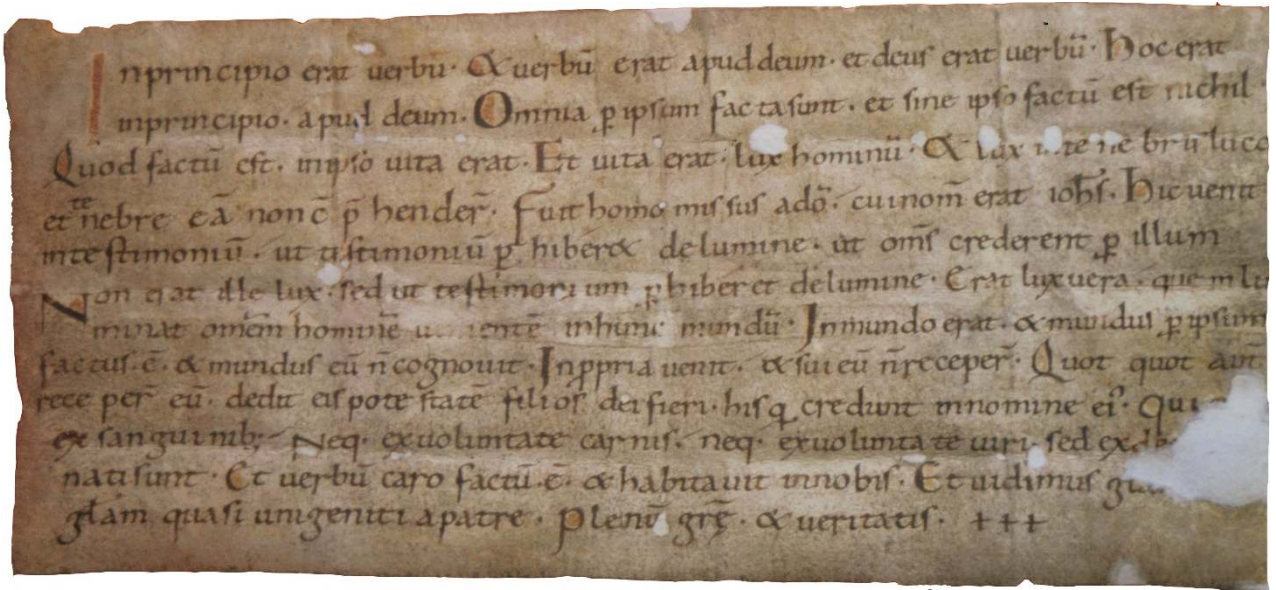 Inprincipio erat uerbū· & uerbū erat apud deum· et deus erat uerbū· Hoc erat
inprincipio· apud deum· Omnia ꝑ ipsum facta sunt· et sine ipso factū est nichil·
Quod factū est· inipso uita erat· Et uita erat· lux hominū· & lux
et tenebre eā non c̄ p̄henđer̄· Fuit homo missus adō· cui nom̄ erat ioħs· Hic uenit
intestimoniū· ut testimoniū ꝑhiber& de lumine· ut om̄s crederent ꝑ illum
Non erat ille lux· sed ut testimonium ꝑhiberet de lumine· Erat lux uera· que inlu
minat omēm hominē inhunc mundū· Inmundo erat· & mundus ꝑ ipsum
factus· ē· & mundus eū n̄ cognouit· Inꝓpria uenit· & sui eū n̄ receper̄· Quot quot aūt
receper̄ eū· dedit eis potestatē filios dei fieri· his q̨ credunt innomine ei᾽· Qui
ex sanguinib; Neq· exuoluntate carnis· neq· exuoluntate uiri· sed ex
nati sunt· Et uerbū caro factū· ē· & habitauit innobis· Et uidimus
gl̄am quasi unigeniti apatre· Plenū gr̄ę· & ueritatis· +++